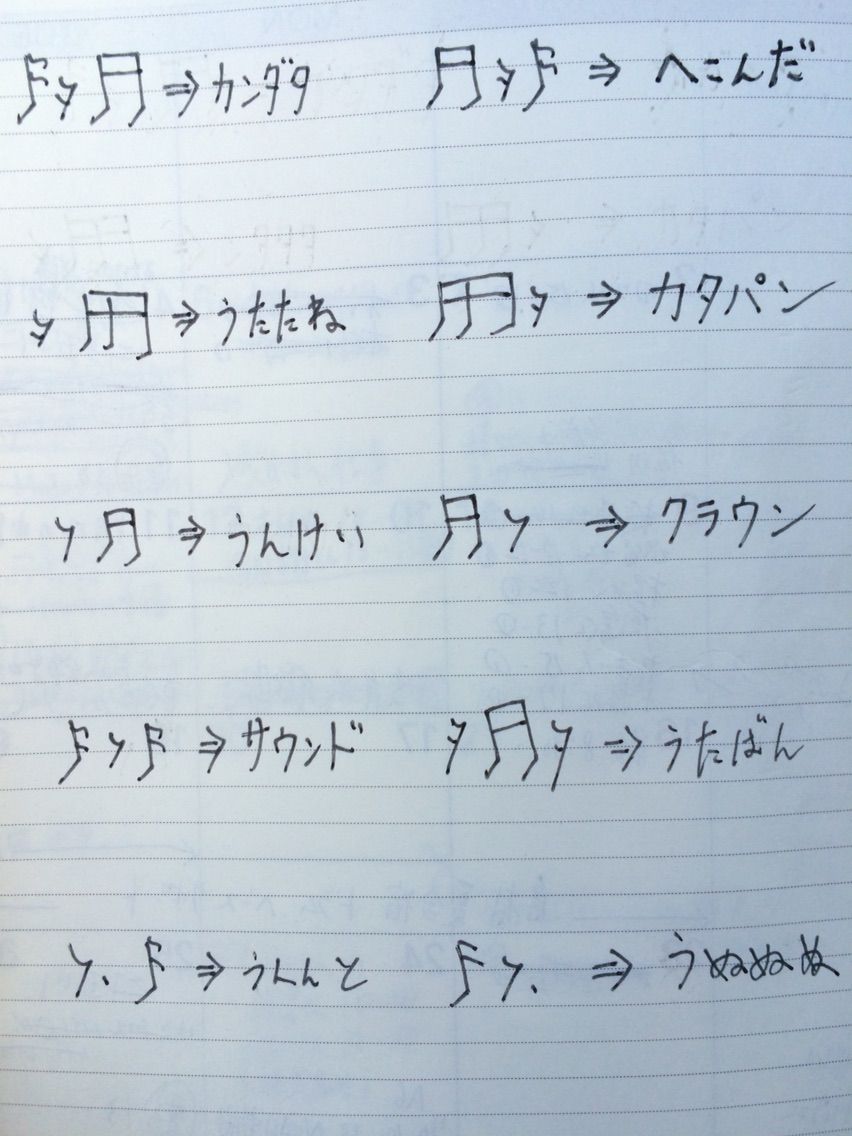 ⇒カンダタ ⇒ へこんだ
⇒うたたね ⇒ カタパン
⇒うんけい ⇒ クラウン
⇒サウンド ⇒うたばん
⇒うんんと ⇒ うぬぬぬ